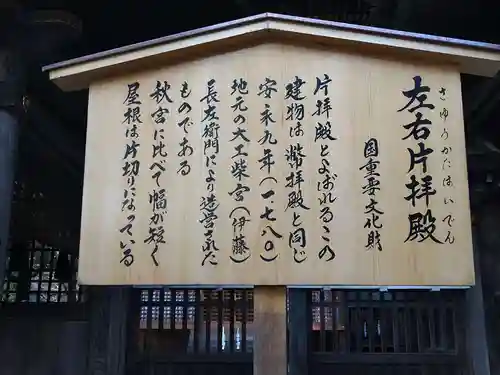 左右片拝殿
さゆうかたはいでん
国重要文化財
片拝殿とよばれるこの
建物は幣拝殿と同じ
安永九年(一,七八〇)
地元の大工柴宮(伊藤)
長左衛門により造営された
ものである
秋宮に比べて幅が短く
屋根は片切りになっている